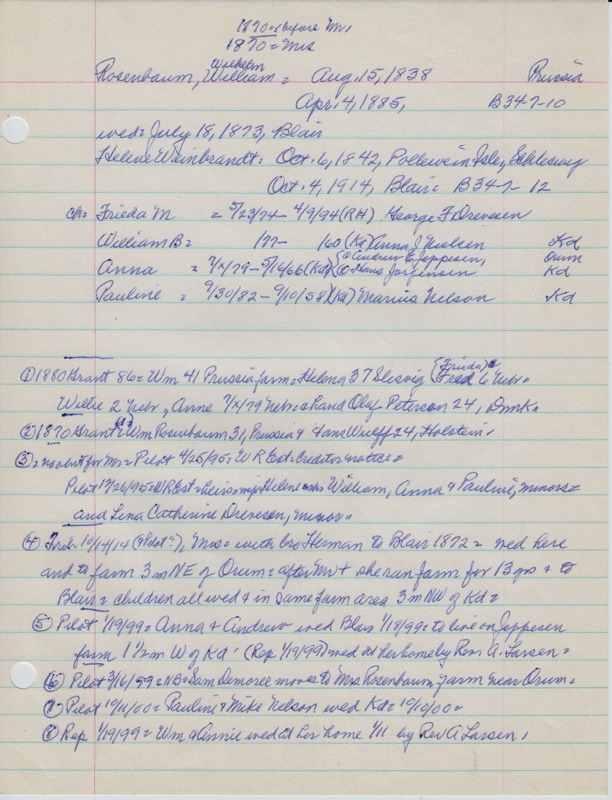 1870 = before Mrs
1870 = Mrs
Wilhelm
Rosenbaum, William = Aug. 15, 1838 Prussia
Apr. 4, 1885, B347-10
wed = July 18, 1873, Blair
Helene Weinbrandt = Oct. 6, 1842, Schleswig
Oct. 4, 1914, Blair = B347-12
ch = Frieda M = 5/23/74 - 4/9/94 (RH) George F Drevesen
William B = /77 - /60 (Kd) Anna J Nielsen Kd
Anna = 7/x/79 - 5/16/66 (Kd) ① Andrew E Jeppesen, Orum
② Hans Jorgensen Kd
Pauline = 9/30/82 - 9/10/58 (Kd) Marius Nelson Kd
① 1880 Grant 86 = Wm 41 Prussia farm = Helena 37 Slesvig (Frieda) Fred 6 Nebr =
Willie 2 Nebr, Anne 7/x/79 Nebr = hand Olaf Peterson 24, Dnmk =
② 1870 Grant = Wm Rosenbaum 31, Prussia & Hans Wulff 24, Holstein =
③ = no obit for Mr = Pilot 4/25/95 = WR Est = Creditor notice =
Pilot 12/26/95 = WR Est = heirs = Helene William, Anna & Pauline, minors =
and Lena Catherine Drevesen, minor =
④ 10/14/14 = Mrs = with bro Herman to Blair 1872 = wed here
and to farm 3 m NE of Orum = after Mr + she ran farm for 13 yrs & to
Blair = children all wed & in same farm area 3 m NW of Kd =
⑤ Pilot 1/19/99 = Anna & Andrew wed Blair 1/18/99 = to live on Jeppesen
farm 1 1/2 m W of Kd = (Rep 1/19/99) wed at her home by Rev. A. Larsen =
⑥ Pilot 3/16/99 = NB = Sam Demoree moves to Mrs Rosenbaum farm near Orum =
⑦ Pilot 10/11/00 = Pauline & Mike Nelson wed Kd = 10/10/00 =
⑧ Rep 1/19/99 = Wm & Annie wed at her home 1/11 by Rev A Larsen,